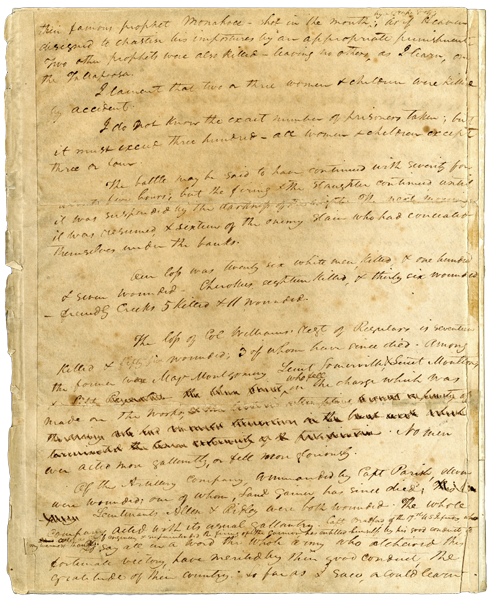 their famous prophet Monahoee - shot in the mouth, as if Heaven
designed to chastise his impostures by an appropriate punishment.
Two other prophets were also killed - leaving no others, as I learn, on
the Tallapoosa.
I lament that two or three women & children were killed
by accident.
I do not know the exact number of prisoners taken; but
it must exceed three hundred - all women & children except
three or four.
The battle may be said to have continued with severity for
five hours; but the firing & the slaughter continued until
it was suspended by the darkness of the night. The next morning
it was resumed & sixteen of the enemy slain who had concealed
themselves under the banks.
Our loss was twenty six white men killed, & one hundred
& seven wounded - Cherokees, eighteen killed, & thirty six wounded
- friendly Creeks 5 killed & 11 wounded.
The loss of Col Williams' Regt of Regulars is seventeen
killed & wounded; 3 of whom have since died. Among
the former were Majr Montgomery Lieut Somerville, & Lieut Moulton
who fell in the charge which was
made on the works
No men
ever acted more gallantly, or fell more gloriously.
Of the Artillery company, commanded by Capt Parish, eleven
were wounded; one of whom, Saml Garner, has since died;
Lieutenants Allen & Ridley were both wounded. The whole
company acted with its usual gallantry. Capt
say all in a word the whole army who atchieved this
fortunate victory, have merited by their good conduct, the
gratitude of their country. So far as I saw, or could learn